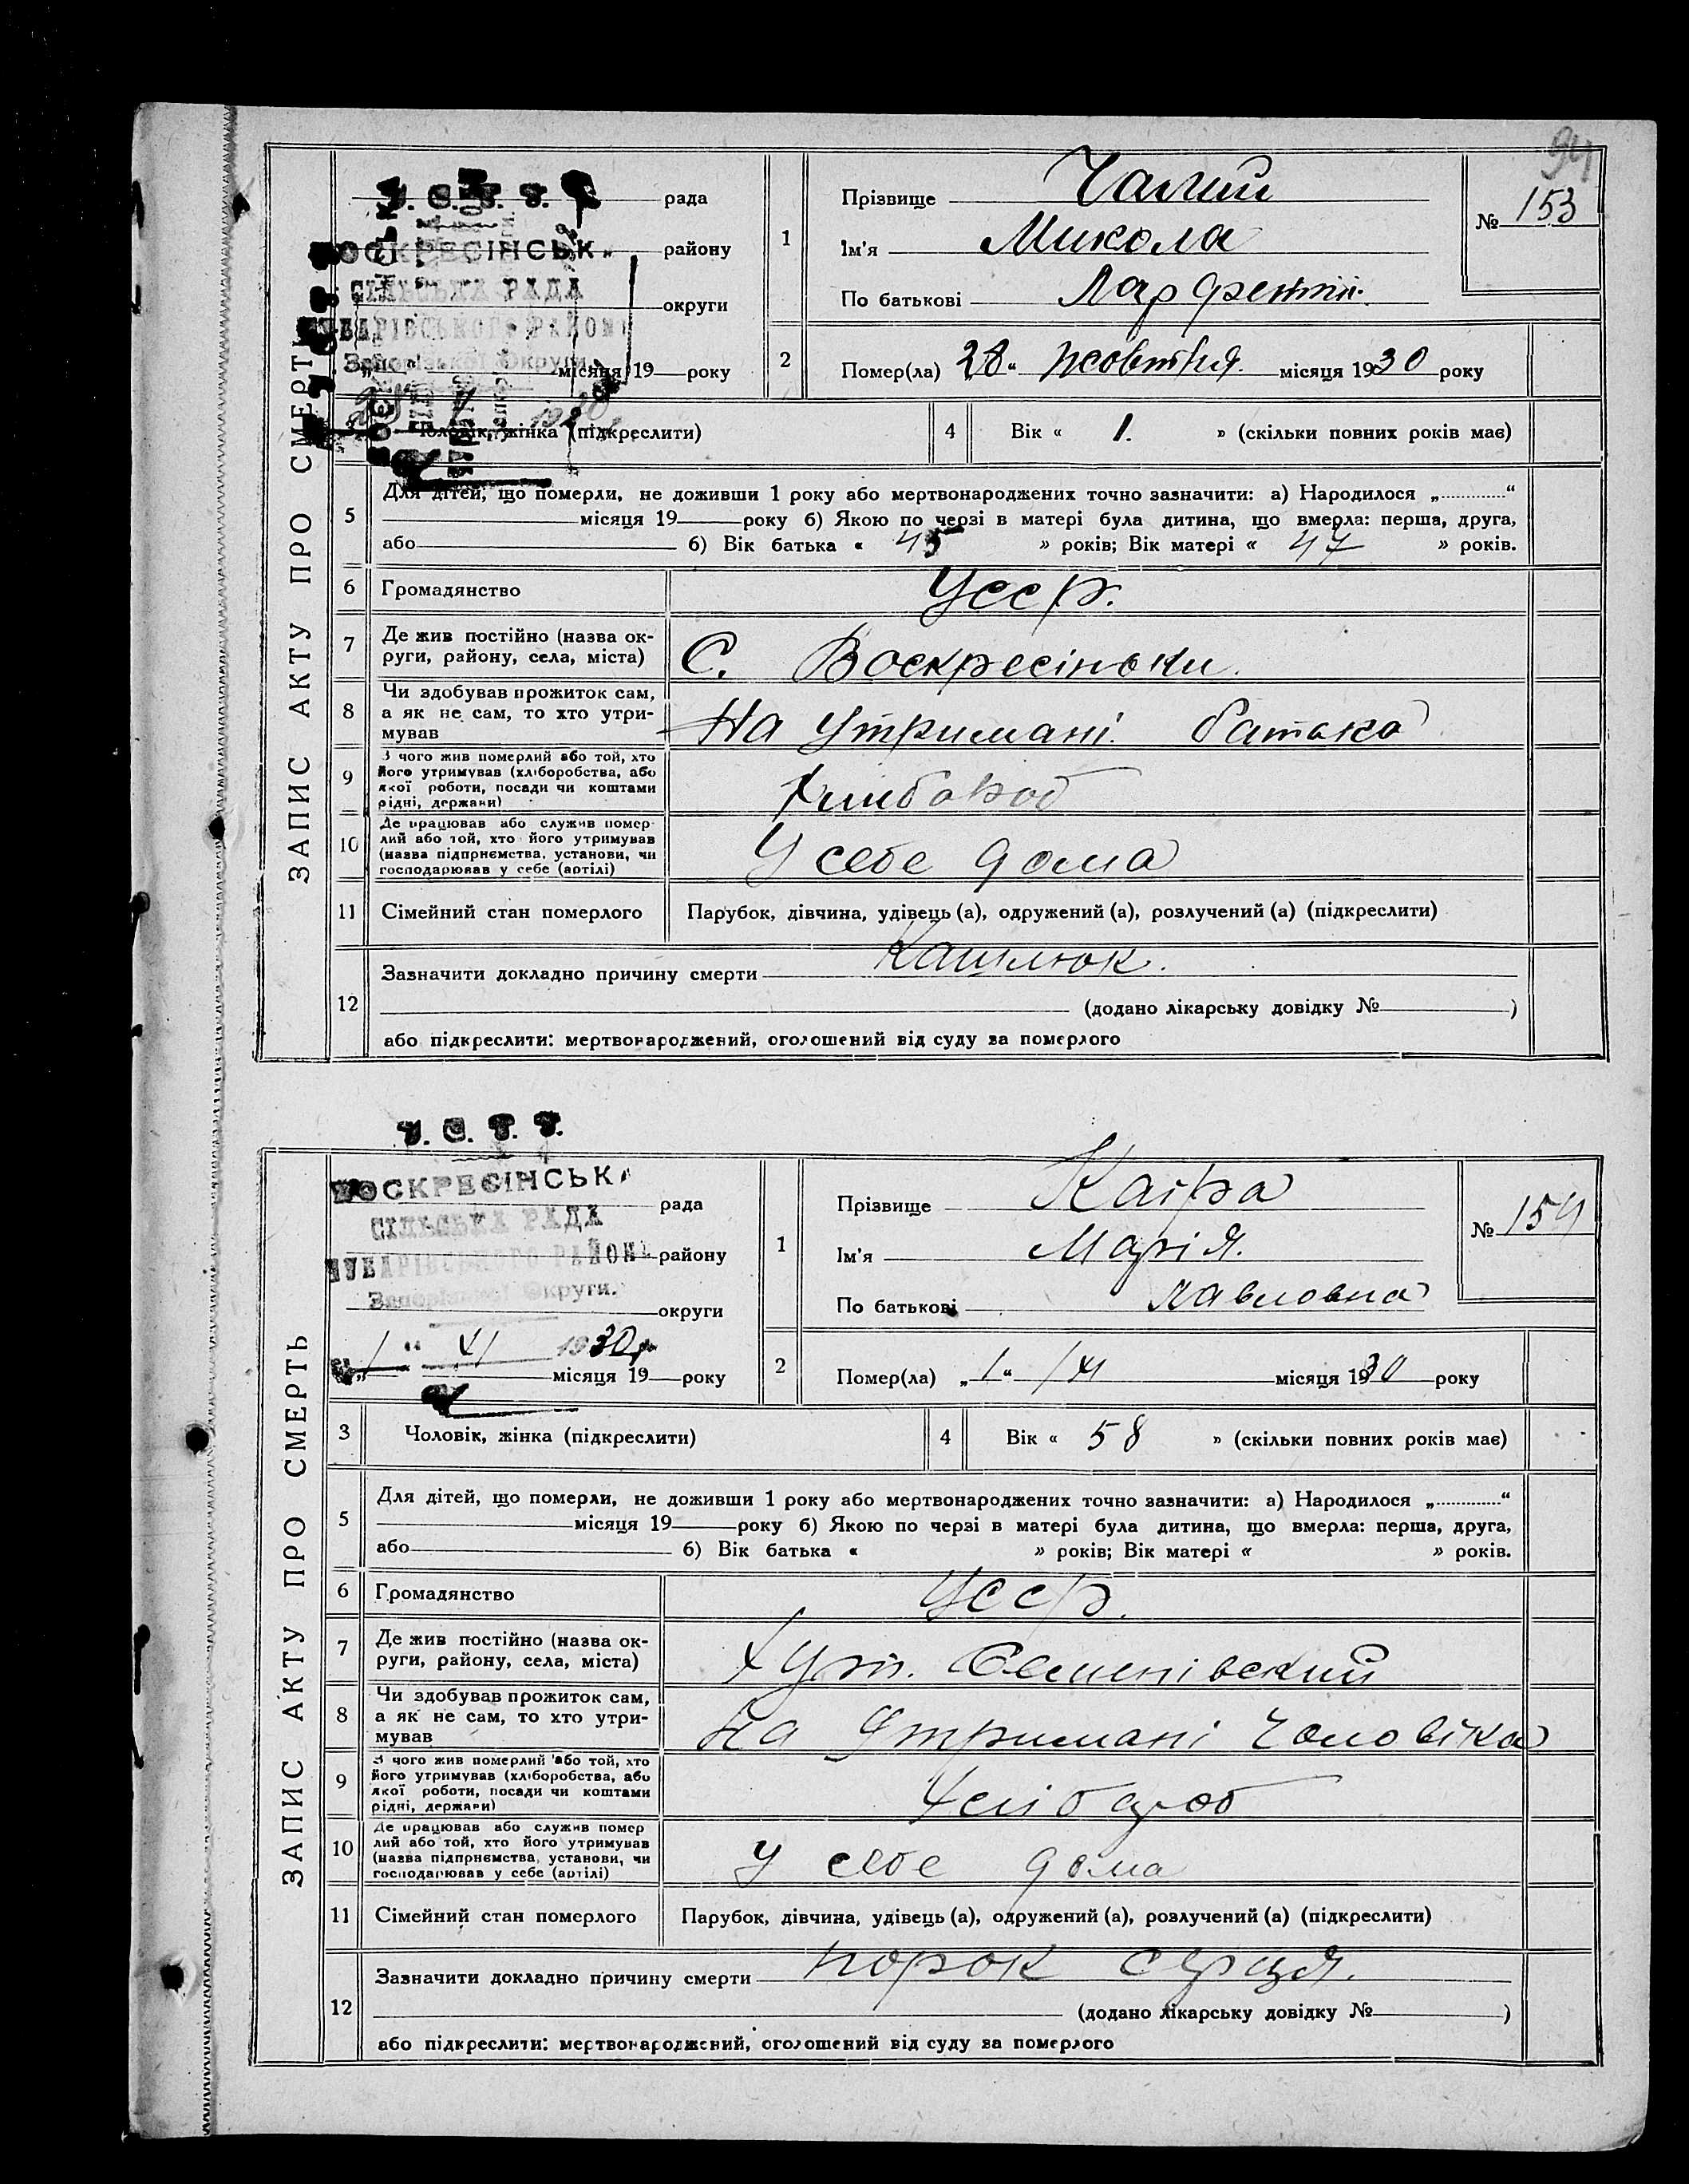 94
ЗАПИС АКТУ ПРО СМЕРТЬ
У. С. Р. Р.
ВОСКРЕСІНСЬКА
СІЛЬСЬКА РАДА
ЧУБАРІВСЬКОГО РАЙОНУ
Запорізької Округи.
рада
району
округи
„ “ місяця 19 року
1 Прізвище Чалий
Ім'я Микола
По батькові
№ 153
2 Помер(ла) „28“ жовтня місяця 1930 року
3 Чоловік, жінка (підкреслити)
4 Вік « 1. » (скільки повних років має)
5 Для дітей, що померли, не доживши 1 року або мертвонароджених точно зазначити: а) Народилося „ “
місяця 19 року б) Якою по черзі в матері була дитина, що вмерла: перша, друга,
або б) Вік батька « 45 » років; Вік матері « 47 » років.
6 Громадянство Усср.
7 Де жив постійно (назва ок-
руги, району, села, міста) С. Воскресіньки.
8 Чи здобував прожиток сам,
а як не сам, то хто утри-
мував На Утримані батька
9 З чого жив померлий або той, хто
його утримував (хліборобства, або
якої роботи, посади чи коштами
рідні, держави) Хлибороб
10 Де працював або служив помер-
лий або той, хто його утримував
(назва підприємства, установи, чи
господарював у себе (артілі) У себе дома
11 Сімейний стан померлого Парубок, дівчина, удівець (а), одружений (а), розлучений (а) (підкреслити)
12 Зазначити докладно причину смерти Кашлюк.
(додано лікарську довідку № )
або підкреслити: мертвонароджений, оголошений від суду за померлого
ЗАПИС АКТУ ПРО СМЕРТЬ
У. С. Р. Р.
ВОСКРЕСІНСЬКА
СІЛЬСЬКА РАДА
ЧУБАРІВСЬКОГО РАЙОНУ
Запорізької Округи.
рада
району
округи
„1“ XI 1930 р.
„ місяця 19 року
1 Прізвище Каіра
Ім'я Марія.
По батькові Павловна
№ 154
2 Помер(ла) „1“ /XI місяця 1930 року
3 Чоловік, жінка (підкреслити)
4 Вік « 58 » (скільки повних років має)
5 Для дітей, що померли, не доживши 1 року або мертвонароджених точно зазначити: а) Народилося „ “
місяця 19 року б) Якою по черзі в матері була дитина, що вмерла: перша, друга,
або б) Вік батька « » років; Вік матері « » років.
6 Громадянство Усср.
7 Де жив постійно (назва ок-
руги, району, села, міста) Хут. Семенівский
8 Чи здобував прожиток сам,
а як не сам, то хто утри-
мував На Утримані Чоловіка
9 З чого жив померлий або той, хто
його утримував (хліборобства, або
якої роботи, посади чи коштами
рідні, держави) Хлібароб
10 Де працював або служив помер
лий або той, хто його утримував
(назва підприємства, установи, чи
господарював у себе (артілі) У себе дома
11 Сімейний стан померлого Парубок, дівчина, удівець (а), одружений (а), розлучений (а) (підкреслити)
12 Зазначити докладно причину смерти порок серця.
(додано лікарську довідку № )
або підкреслити: мертвонароджений, оголошений від суду за померлого